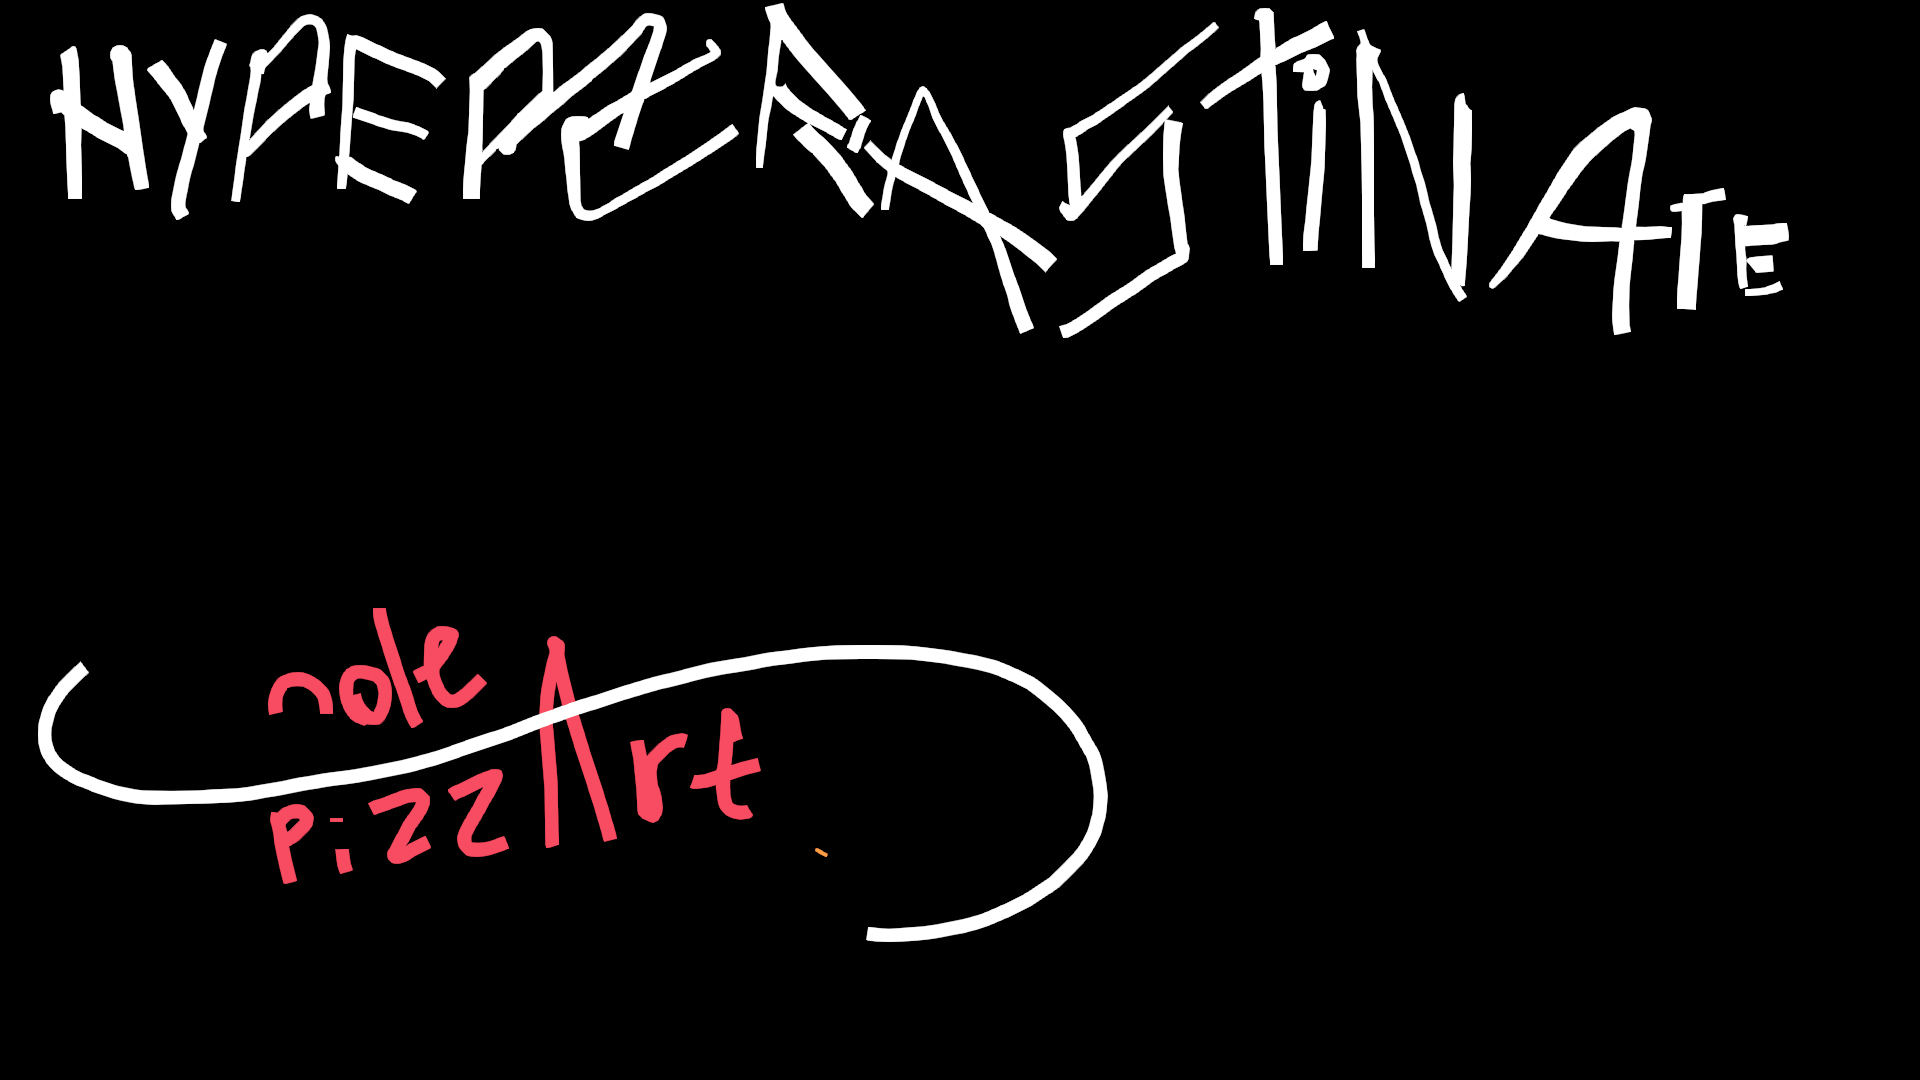 HYPERCRASTiNATE
nole
pizzArt